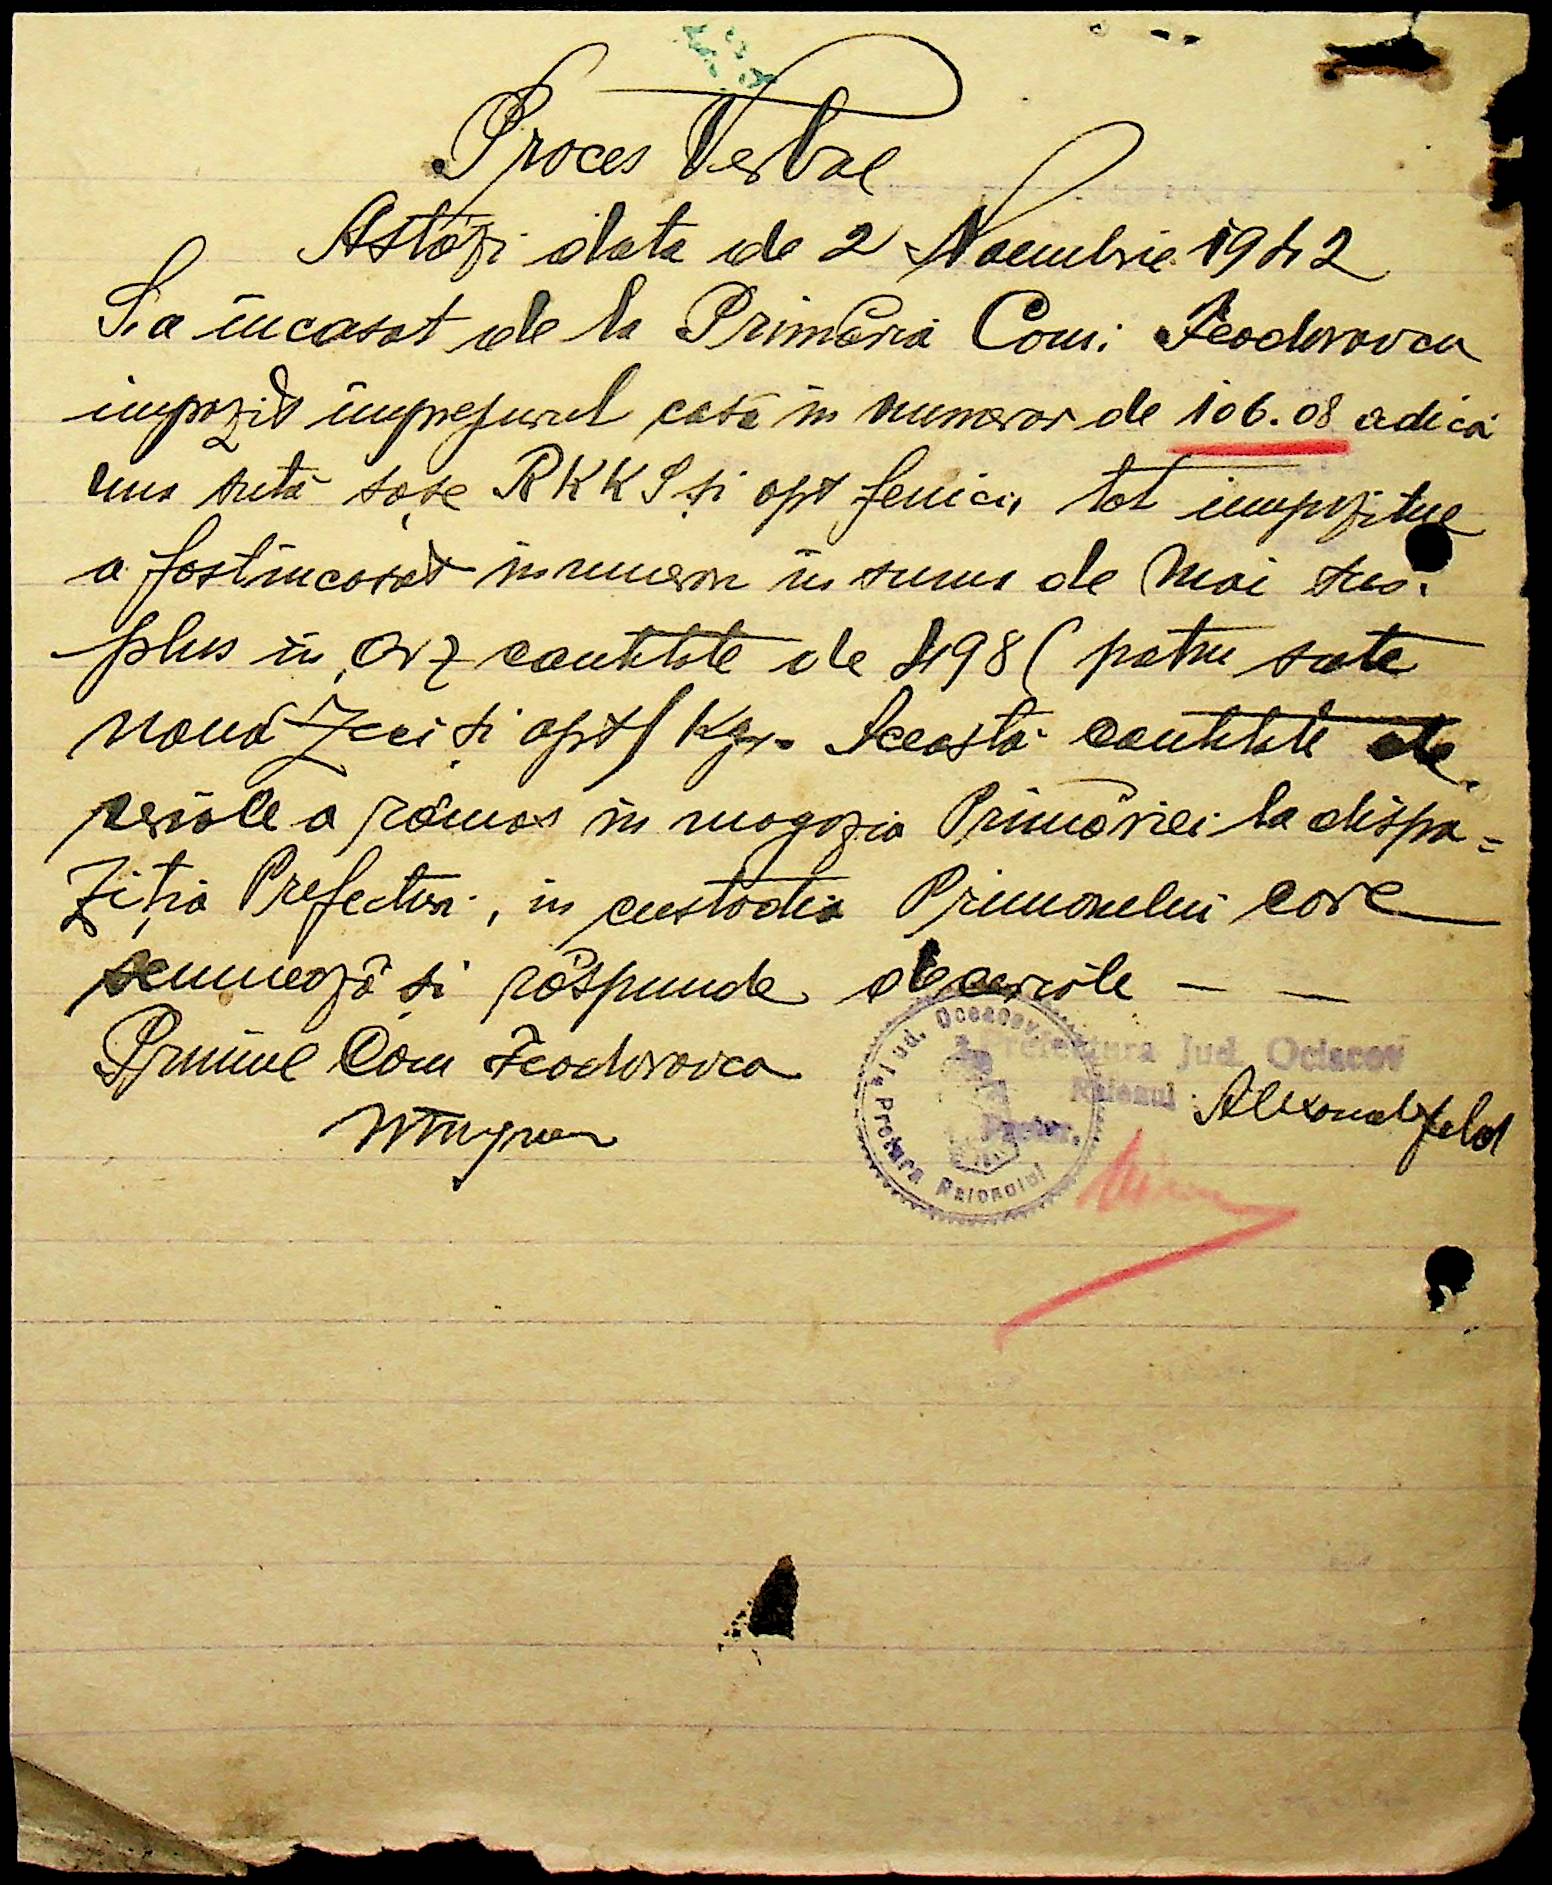 Proces Verbal
Astăzi data de 2 Noembrie 1942
S,a încasat de la Primăria Com: Feodorovca
impozit împrejurul casă în numerar de 106.08 adică
una sută șase RKKS și opt fenici, tot impozitul
a fost încasat în numerar în suma de mai sus.
plus în orz cantitate de 498 (patru sute
nouă zeci și opt) Kgr. Această cantitate de
ceriale a rămas în magazia Primăriei la dispo=
ziția Prefecturi, în custodia Primarului care
semnează și răspunde de ceriale — —
Primar Com Feodorovca
Jud. Oceacov
Pretura Raionului
Prefectura Jud. Ociacov
Raionul Alexanderfeld
Pretor,